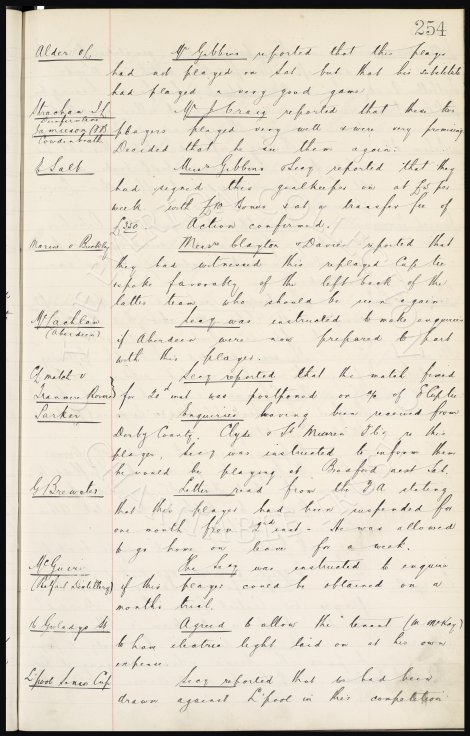 254
Alder of. Mr Gibbins reported that this player
had not played on Sat but that his substitute
had played a very good game
Strachan I.L. Mr J Craig reported that these two
Dunfermline
Jamieson (HB) players played very well & were very promising
Cowdenbeath
Decided that he see them again.
Salt Messrs Gibbins & Secy reported that they
had signed this goalkeeper on at £5 per
week with £10 bonus & at a transfer fee of
£350. Action confirmed.
Messrs Clayton & Davies reported that
they had witnessed this replayed Cup tie
spoke favorably of the left back of the
latter team who should be seen again
McLachlan Secy was instructed to make enquiries
(Aberdeen)
if Aberdeen were now prepared to part
with this player.
CL match v Secy reported that the match fixed
Tranmere Rovers for 20th inst was postponed on a/c of E Cup tie
Parker Enquiries having been received from
Derby County, Clyde & St Mirren Fbc re this
player, Secy was instructed to inform them
he would be playing at Bradford next Sat.
G Brewster Letter read from the FA stating
that this player had been suspended for
one month from 2nd inst. He was allowed
to go home on leave for a week.
The Secy was instructed to enquire
(Belfast Distillery) if this player could be obtained on a
months trial.
Gwladys St Agreed to allow the tenant (Mr McKay)
to have electric light laid on at his own
expense.
L'pool Senior Cup Secy reported that we had been
drawn against L'pool in this competition